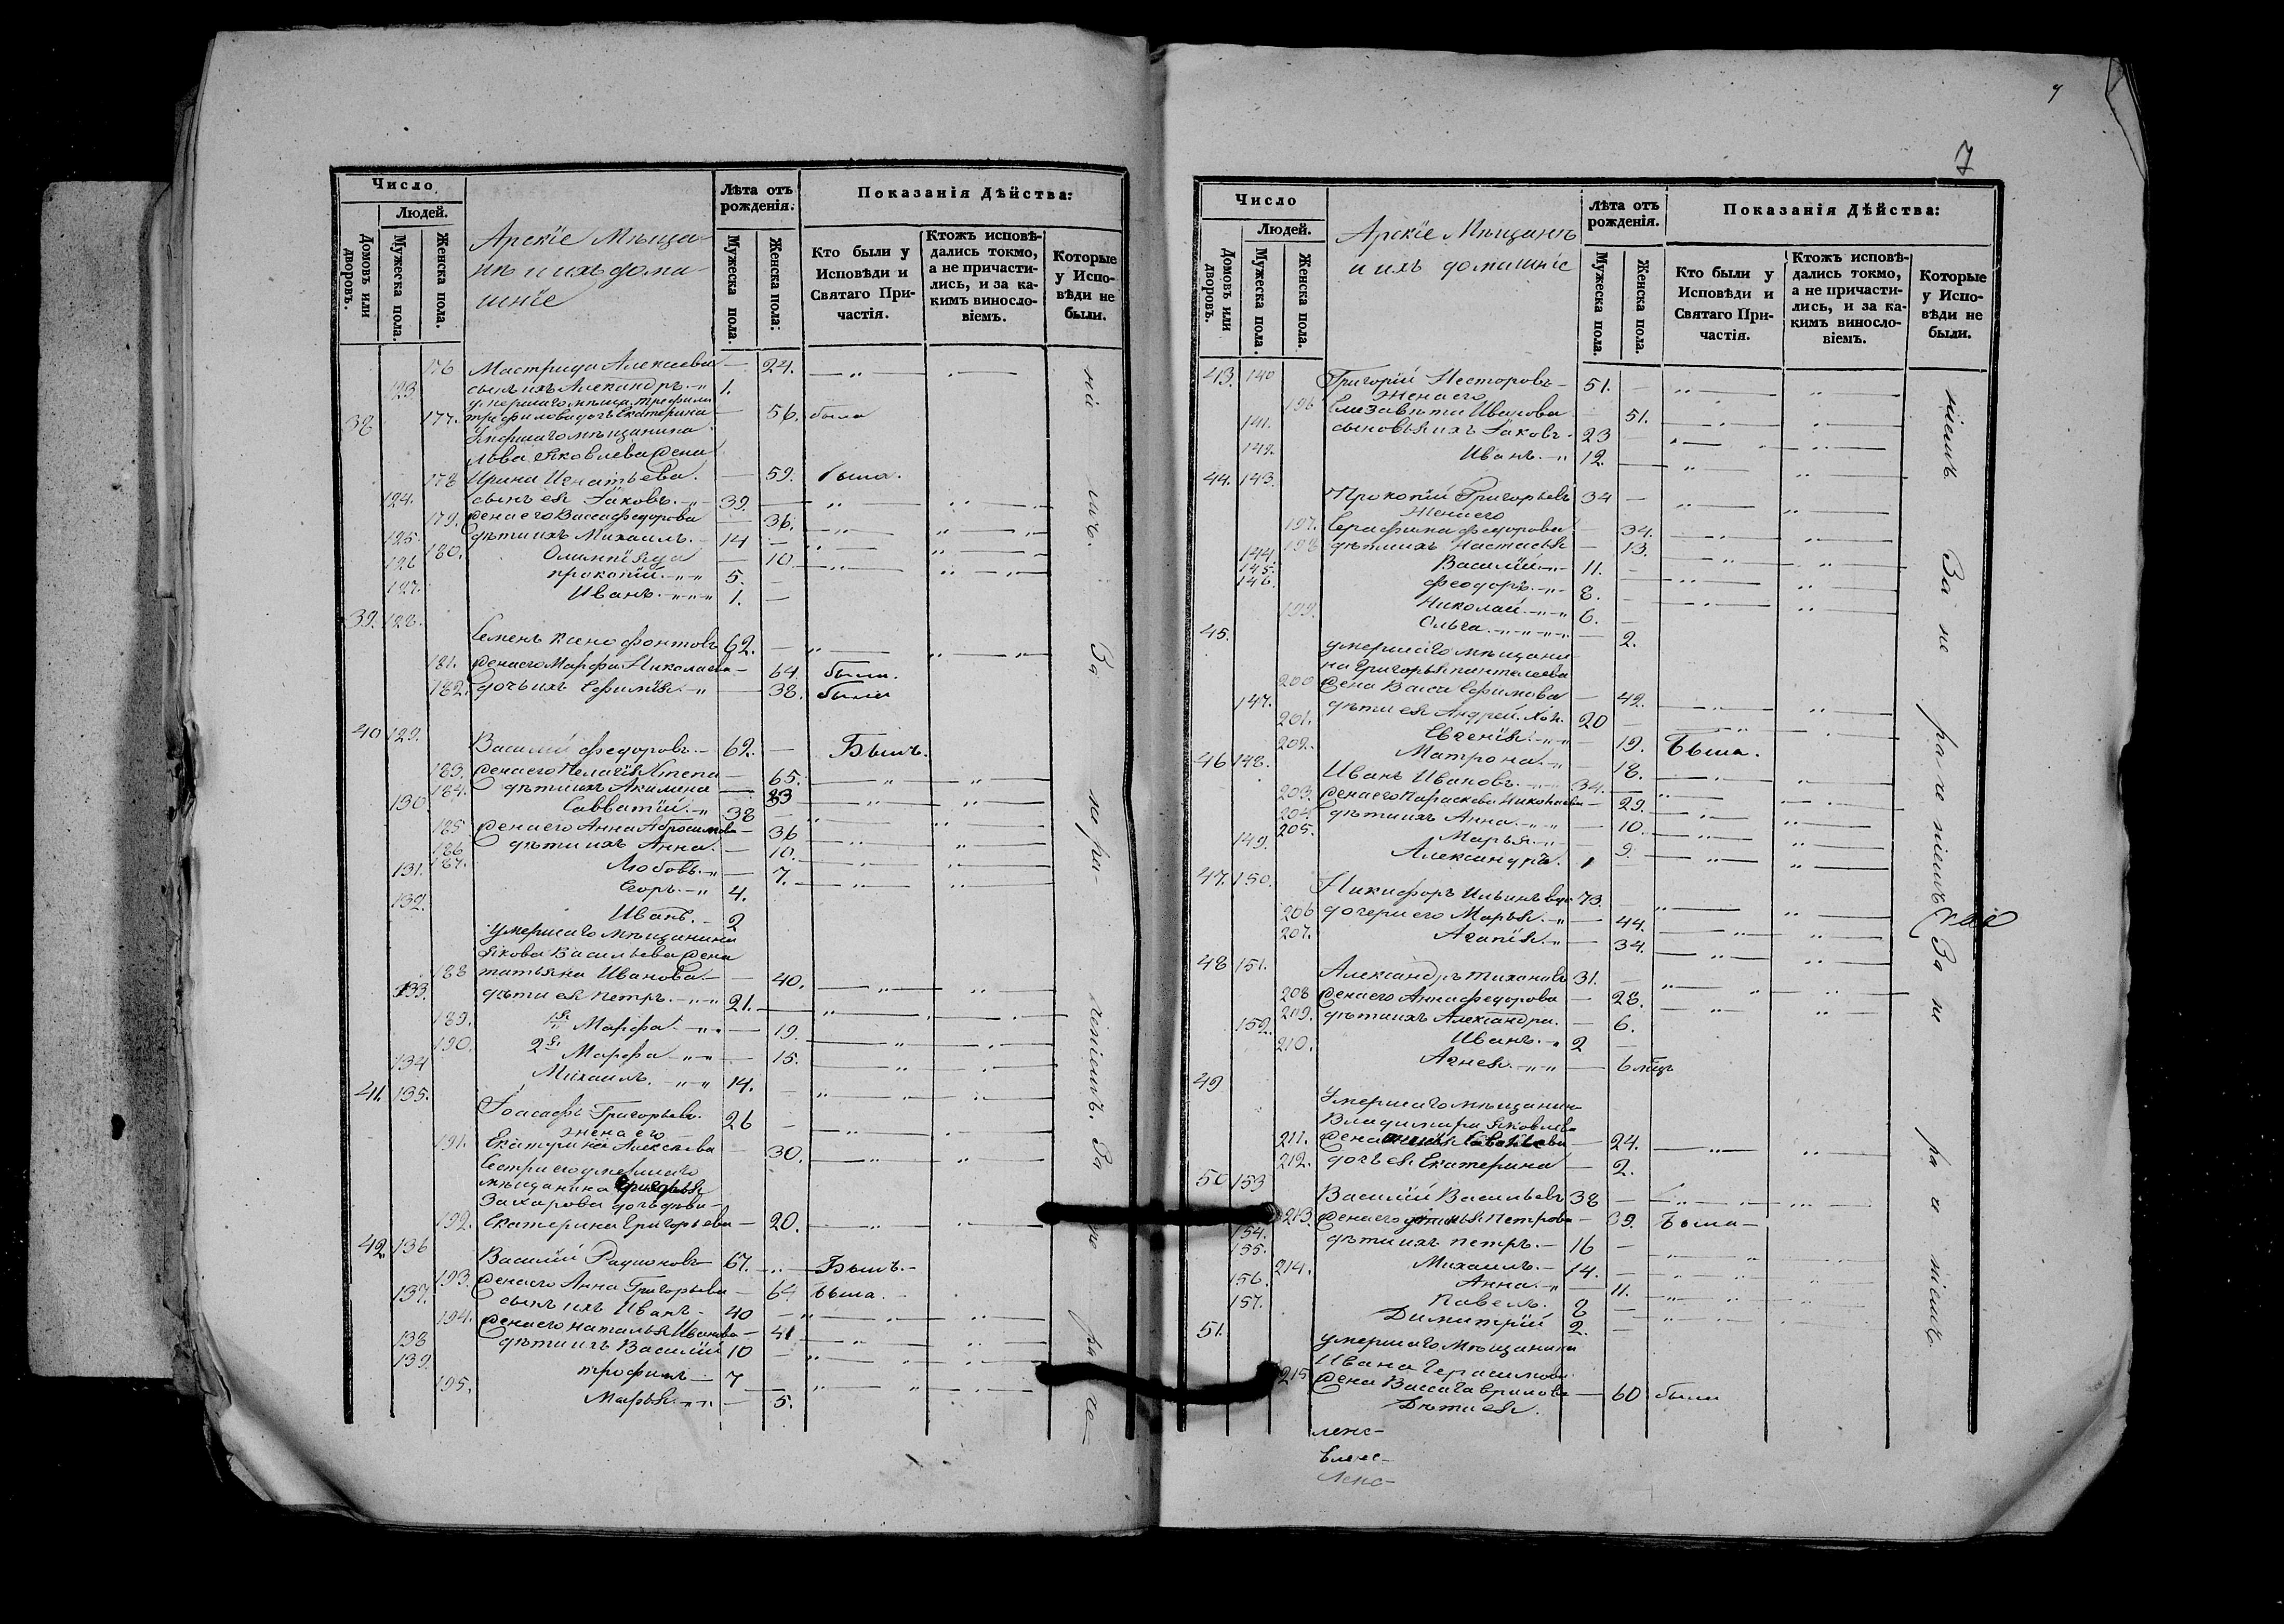 Число
Людей.
Домовъ или дворовъ.
Мужеска пола.
Женска пола.
Арскіе Мѣща-
не и ихъ дома-
шніе
Лѣта отъ рожденія.
Мужеска пола.
Женска пола.
Показанія Дѣйства:
Кто были у Исповѣди и Святаго Причастія.
Ктожъ исповѣдались токмо, а не причастились, и за какимъ винословіемъ.
Которые у Исповѣди не были.
176 Алексѣева — 24.
123 сынъ ихъ Александръ 1.
умершаго мѣщан. Трефила
177. Трефилова дочь Екатерина — 56. была
38 Умершаго мѣщанина
Льва Яковлева жена
178 Ирина Игнатьева. — 59. была.
124. сынъ ея Іаковъ 39. —
179. жена его Васса Федорова — 36.
125. дѣти ихъ Михаилъ. 14 —
180. Олимпіяда — 10
126 Прокопій 5. —
127. Иванъ 1. —
39. 128. Семенъ Ксенофонтовъ 62. —
181. жена его Марфа Николаева — 64. была.
182. дочь ихъ Ефимія — 38. была
40 129. Василій Федоровъ 62. — Былъ.
183. жена его Пелагія — 65.
184. дѣти ихъ Акилина —
130 Савватій 38 —
185 жена его Анна Абросимова — 36
186 дѣти ихъ Анна. — 10.
187. Любовь — 7.
131. Егоръ 4.
132. Иванъ. 2
умершаго мѣщанина
Якова Васильева жена
188 Татьяна Иванова — 40.
133. дѣти ея Петръ 21. —
189. 1я Марфа — 19.
190. 2я Марфа — 15.
134 Михаилъ. 14. —
41. 135. Іоасафъ Григорьевъ. 26 —
жена его
191. Екатерина Алексѣева — 30.
Сестра его умершаго
мѣщанина Григорья
Захарова дочь дѣви-
192. Екатерина Григорьева — 20.
42 136 Василій Родіоновъ 67. Былъ.
193. жена его Анна Григорьева — 64 была.
137. сынъ ихъ Иванъ 40
194. жена его Наталья Иванова — 41
138 дѣти ихъ Василій 10 —
139. Трофимъ 7
195. Марья — 5.
ніи имъ. За не ра- ченіемъ. За не ра че-
7
Число
Людей.
Домовъ или дворовъ.
Мужеска пола.
Женска пола.
Арскіе Мѣщане
и ихъ домашніе
Лѣта отъ рожденія.
Мужеска пола.
Женска пола.
Показанія Дѣйства:
Кто были у Исповѣди и Святаго Причастія.
Ктожъ исповѣдались токмо, а не причастились, и за какимъ винословіемъ.
Которые у Исповѣди не были.
43. 140 Григорій Несторовъ 51. —
жена его
196 Елизавета Иванова — 51.
141. сыновья ихъ Іаковъ 23 —
142. Иванъ 12. —
44. 143. Прокопій Григорьевъ 34 —
жена его
197. Серафима Федорова — 34.
198 дѣти ихъ Настасья — 13.
144. Василій 11. —
145. Феодоръ 8. —
146. Николай 6. —
199. Ольга — 2.
45. умершаго мѣщани-
на Григорья Пантелеева
200 жена Васса Ефимова — 42.
147. дѣти ея Андрей. 20 —
201. Евгенія — 19. была.
202. Матрона — 18.
46 148. Иванъ Ивановъ 34. —
203. жена его Параскева Николаева — 29.
204 дѣти ихъ Анна — 10.
205. Марья — 9.
149. Александръ. 1
47. 150. Никифоръ Ильинъ вдо 73. —
206 дочери его Марья — 44.
207. Агапія — 34.
48 151. Александръ Тихановъ 31. —
208 жена его Анна Федорова — 28.
209. дѣти ихъ Александра. — 6.
152. Иванъ 2 —
210. Агнея — 6 мѣс
49 Умершаго мѣщанина
Владимира Яковлева
211. жена — 24.
212. дочь ея Екатерина — 2.
50 153 Василій Васильевъ 38 —
213. жена его Петрова — 39. была
154. дѣти ихъ Петръ 16 —
155. Михаилъ 14. —
214. Анна — 11.
156. Павелъ. 8 —
157. Димитрій 2. —
51. умершаго Мѣщанина
Ивана Герасимова
215 жена Васса Гаврилова — 60 была
Дѣти ея.
ніемъ. За не раченіемъ За не ра че ніемъ